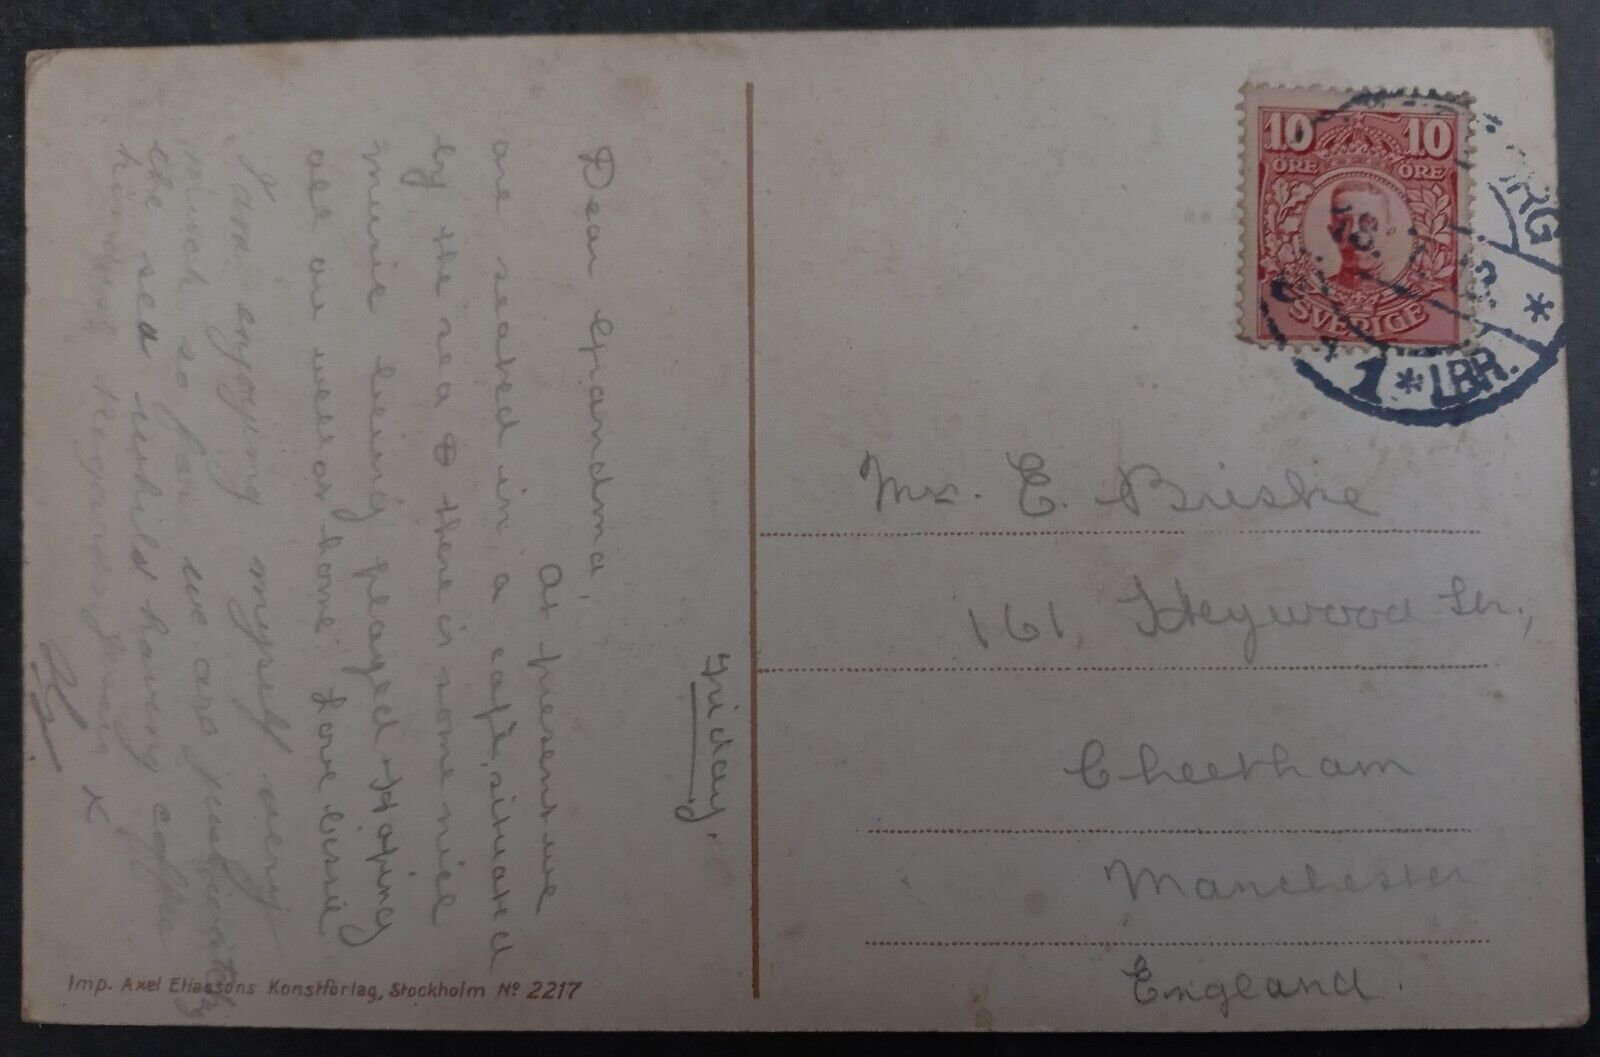 Friday.
Dear Grandma,
At present we
are seated in a café, situated
by the sea & there is some nice
music being played. Hoping
all are well at home. Love Lissie
I am enjoying myself very
much so far we are just
the sea whild having coffee
Kindest Regards x
10 10
ÖRE ÖRE
SVERIGE
1 * LBR. *
Mrs. E. Briske
161, Heywood St.,
Cheetham
Manchester
England.
Imp. Axel Eliassons Konstförlag, Stockholm No 2217